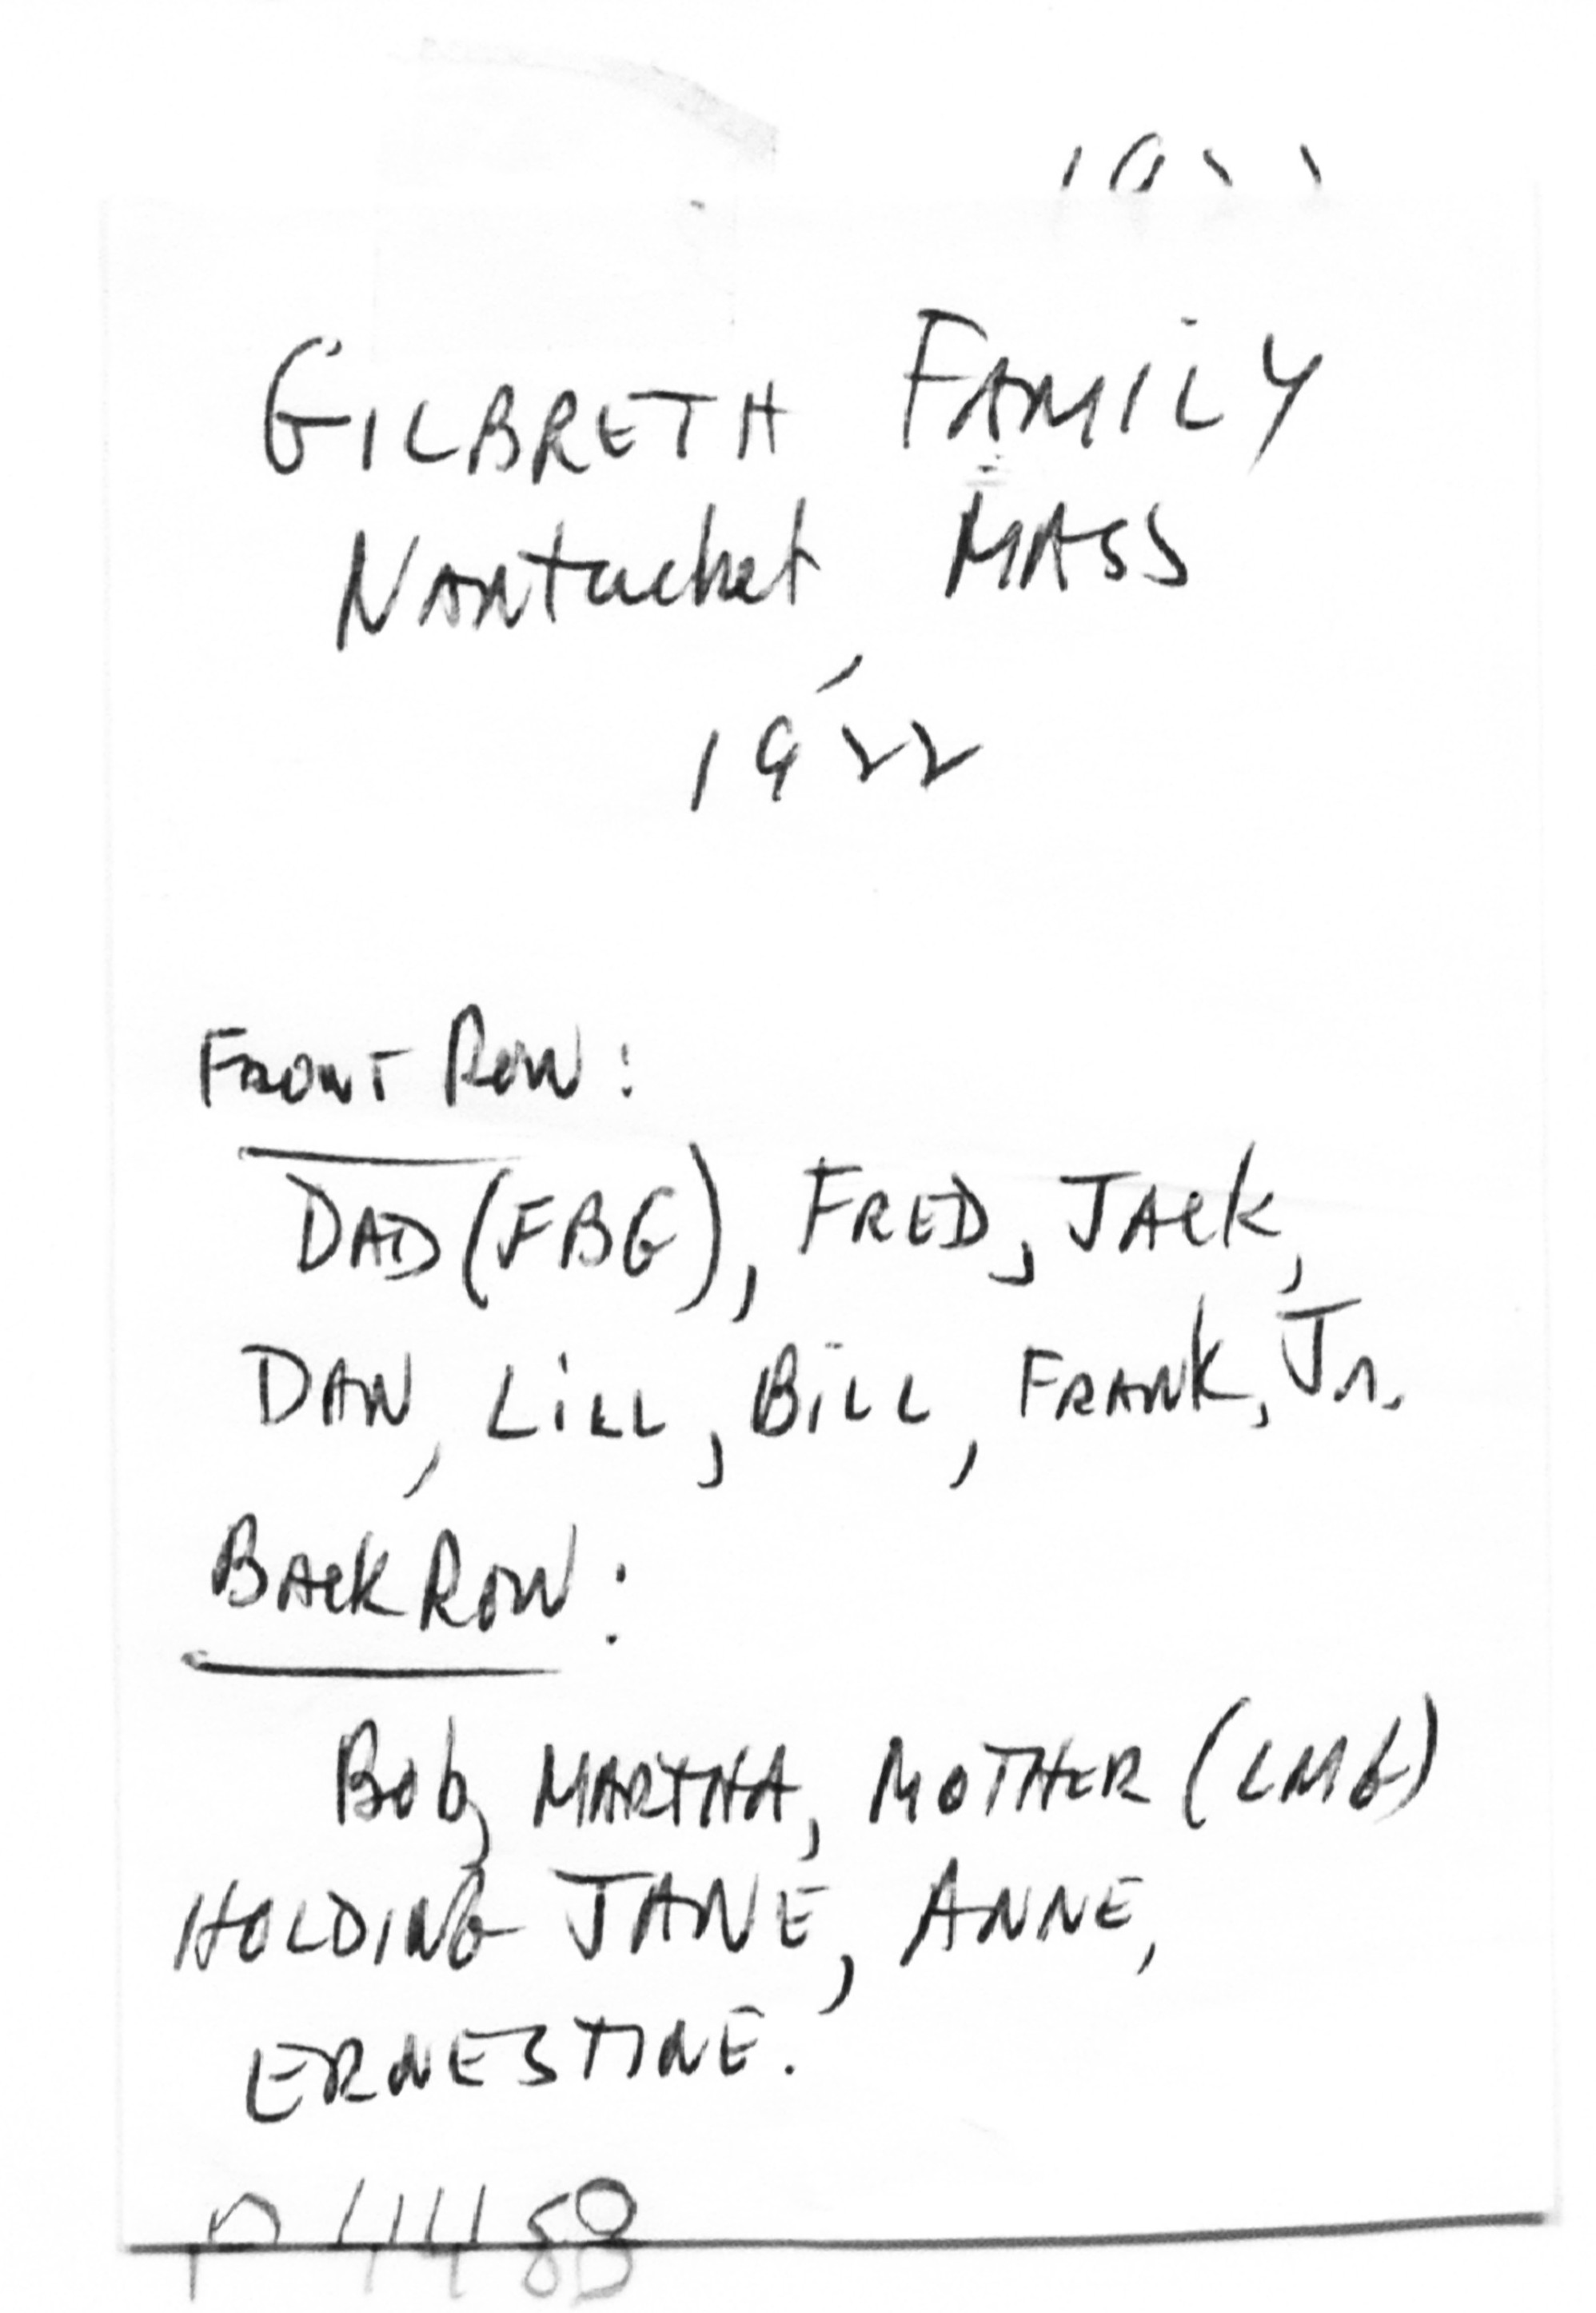 GILBRETH FAMILY
Nantucket MASS
1922
FRONT ROW:
DAD (FBG), FRED, JACK,
DAN, LILL, BILL, FRANK, Jr.
BACK ROW:
Bob, MARTHA, MOTHER (LMG)
HOLDING JANE, ANNE,
ERNESTINE.